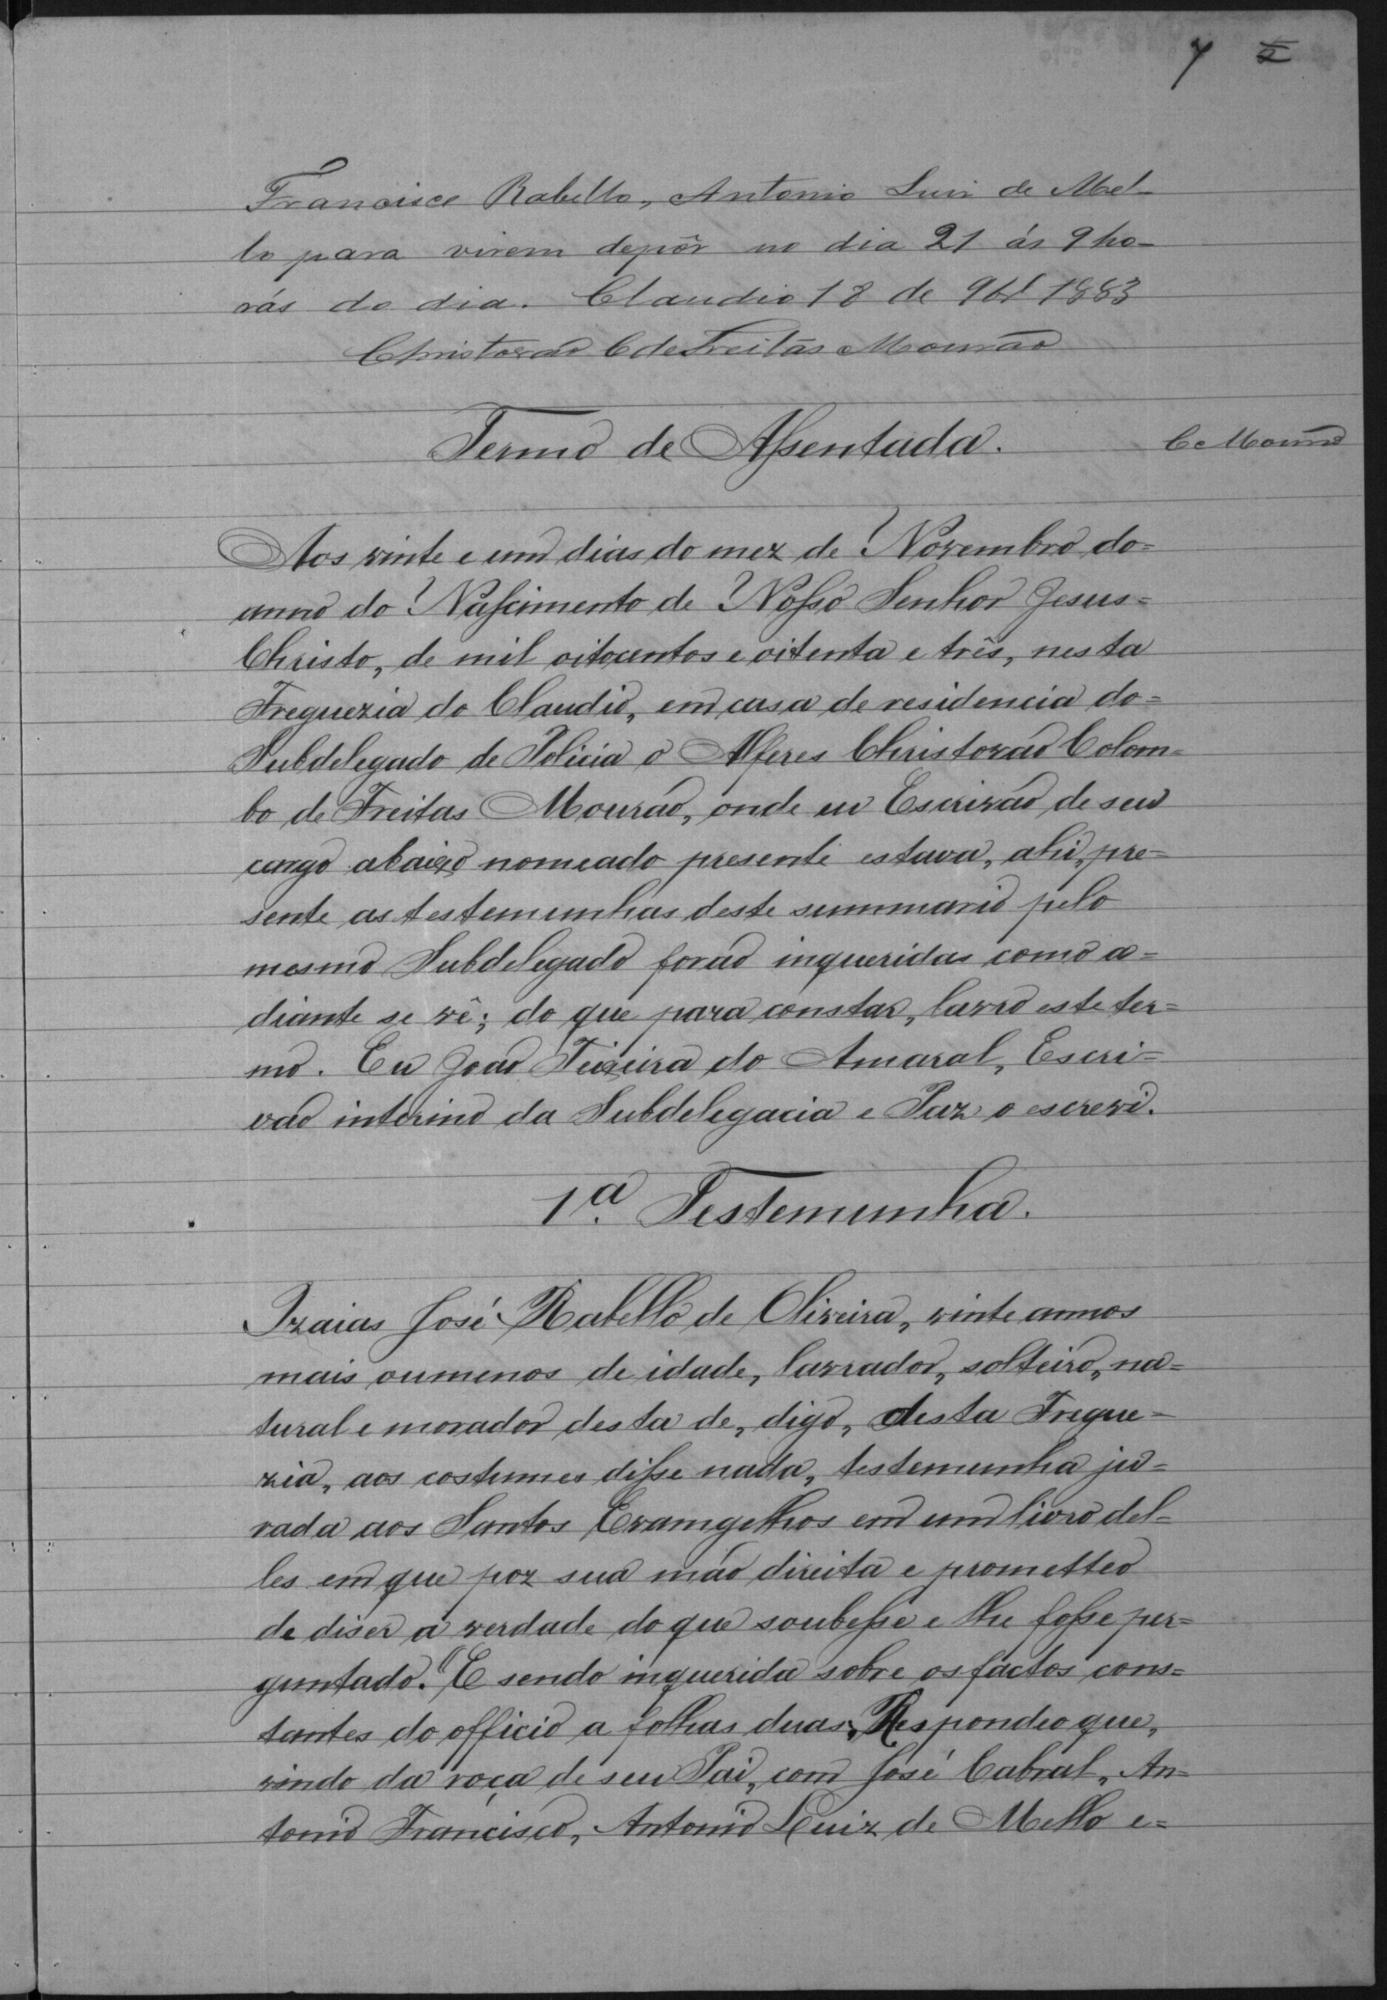 7
Francisco Rabello, Antonio Luiz de Mel-
lo para virem depôr no dia 21 ás 9 ho-
rás do dia. Claudio 18 de 9br 1883
Christovão C de Freitas Mourão
Termo de Assentada.
C. Mourão
Aos vinte e um dias do mez de Novembro do=
anno do Nascimento de Nosso Senhor Jesus=
Christo, de mil oitocentos e oitenta e três, nesta
Freguezia do Claudio, em casa de residencia do=
Subdelegado de Policia o Alferes Christovão Colom=
bo de Freitas Mourão, onde eu Escrivão de seu
cargo abaixo nomeado presente estava, ahi, pre=
sente as testemunhas deste summario pelo
mesmo Subdelegado forão inqueridas como a=
diante se vê; do que para constar, lavro este ter=
mo. Eu João Teixeira do Amaral, Escri=
vão interino da Subdelegacia e Paz o escrevi.
1ª. Testemunha.
Izaias José Rabello de Oliveira, vinte annos
mais ou menos de idade, lavrador, solteiro, na=
tural e morador desta de, digo, desta Fregue=
zia, aos costumes disse nada, testemunha ju=
rada aos Santos Evamgelhos em um livro del=
les em que poz sua mão direita e prometteo
de diser a verdade do que soubesse e lhe fosse per=
guntado. E sendo inquerida sobre os factos cons=
tantes do officio a folhas duas, Respondeo que,
vindo da roça de seu Pai, com José Cabral, An=
tonio Francisco, Antonio Luiz de Mello e=